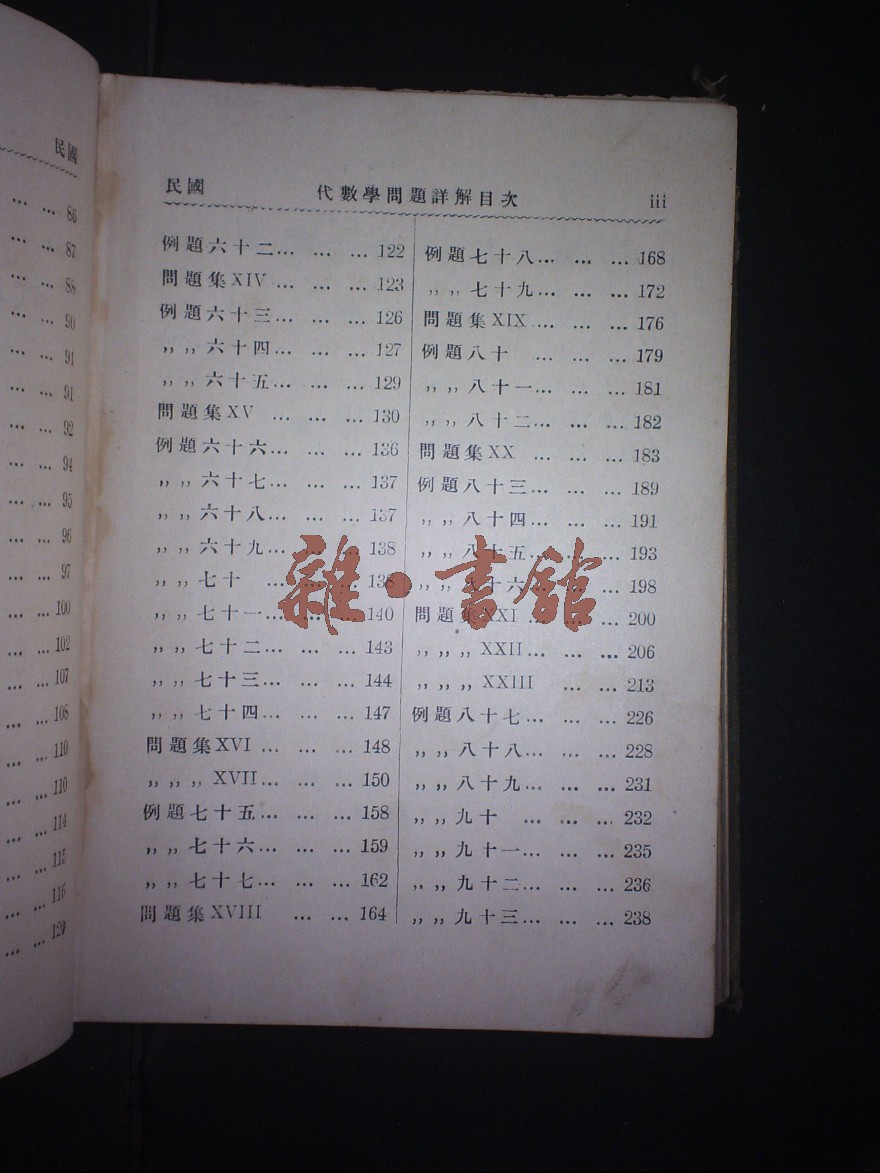 民國
... ... 86
... ... 87
... ... 88
... ... 90
... ... 91
... ... 91
... ... 92
... ... 94
... ... 95
... ... 96
... ... 97
... ... 100
... ... 102
... ... 107
... ... 108
... ... 110
... ... 110
... ... 114
... ... 115
... ... 116
... ... 120
民國 代數學問題詳解目次 iii
例題六十二... ... ... 122
問題集XIV ... ... ... 123
例題六十三... ... ... 126
,, ,, 六十四... ... ... 127
,, ,, 六十五... ... ... 129
問題集XV ... ... ... 130
例題六十六... ... ... 136
,, ,, 六十七... ... ... 137
,, ,, 六十八... ... ... 137
,, ,, 六十九... ... ... 138
,, ,, 七十 ... ... ... 138
,, ,, 七十一... ... ... 140
,, ,, 七十二... ... ... 143
,, ,, 七十三... ... ... 144
,, ,, 七十四... ... ... 147
問題集XVI ... ... ... 148
,, ,, ,, XVII... ... ... 150
例題七十五... ... ... 158
,, ,, 七十六... ... ... 159
,, ,, 七十七... ... ... 162
問題集XVIII ... ... 164
例題七十八... ... ... 168
,, ,, 七十九... ... ... 172
問題集XIX ... ... ... 176
例題八十 ... ... ... 179
,, ,, 八十一... ... ... 181
,, ,, 八十二... ... ... 182
問題集XX ... ... ... 183
例題八十三... ... ... 189
,, ,, 八十四... ... ... 191
,, ,, 八十五... ... ... 193
,, ,, 八十六... ... ... 198
問題集XXI ... ... ... 200
,, ,, ,, XXII... ... ... 206
,, ,, ,, XXIII ... ... 213
例題八十七... ... ... 226
,, ,, 八十八... ... ... 228
,, ,, 八十九... ... ... 231
,, ,, 九十 ... ... ... 232
,, ,, 九十一... ... ... 235
,, ,, 九十二... ... ... 236
,, ,, 九十三... ... ... 238
雜·書館